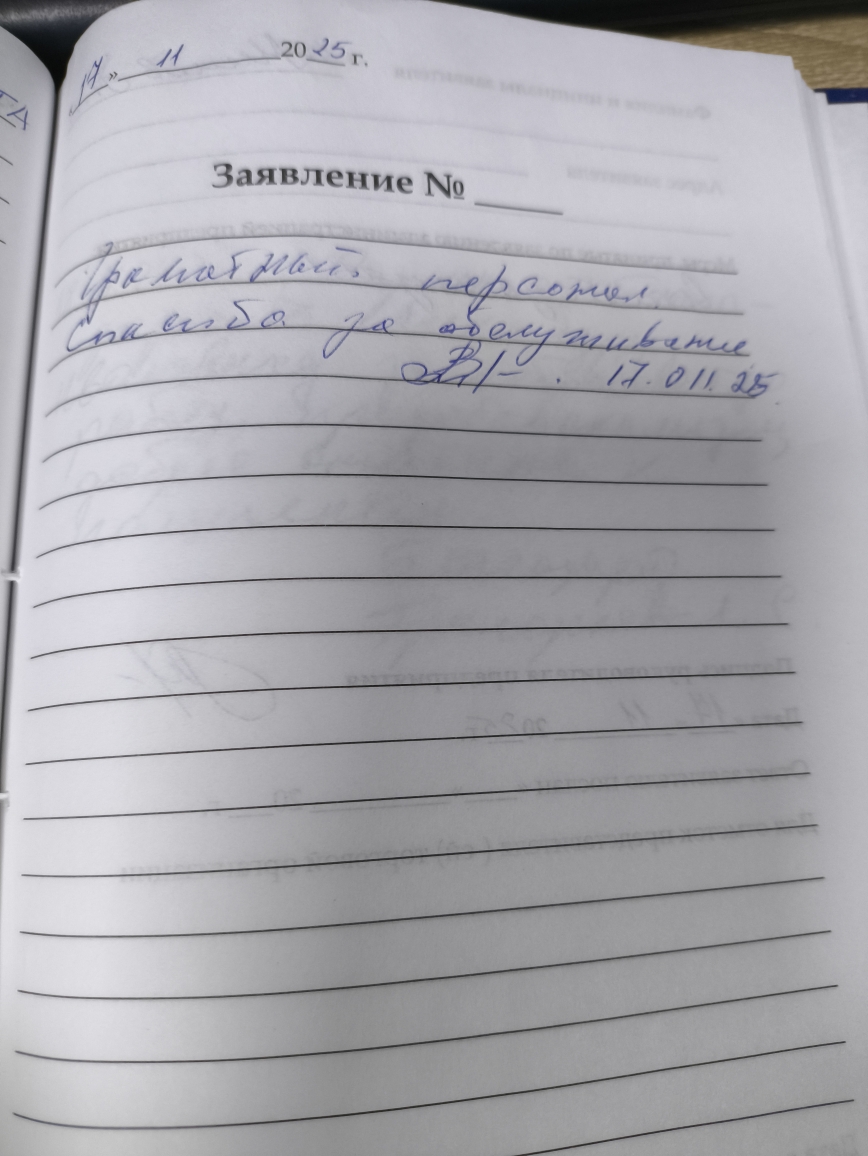 17 » 11 2025 г.
Заявление №
Грамотный персонал.
Спасибо за обслуживание
17.011.25